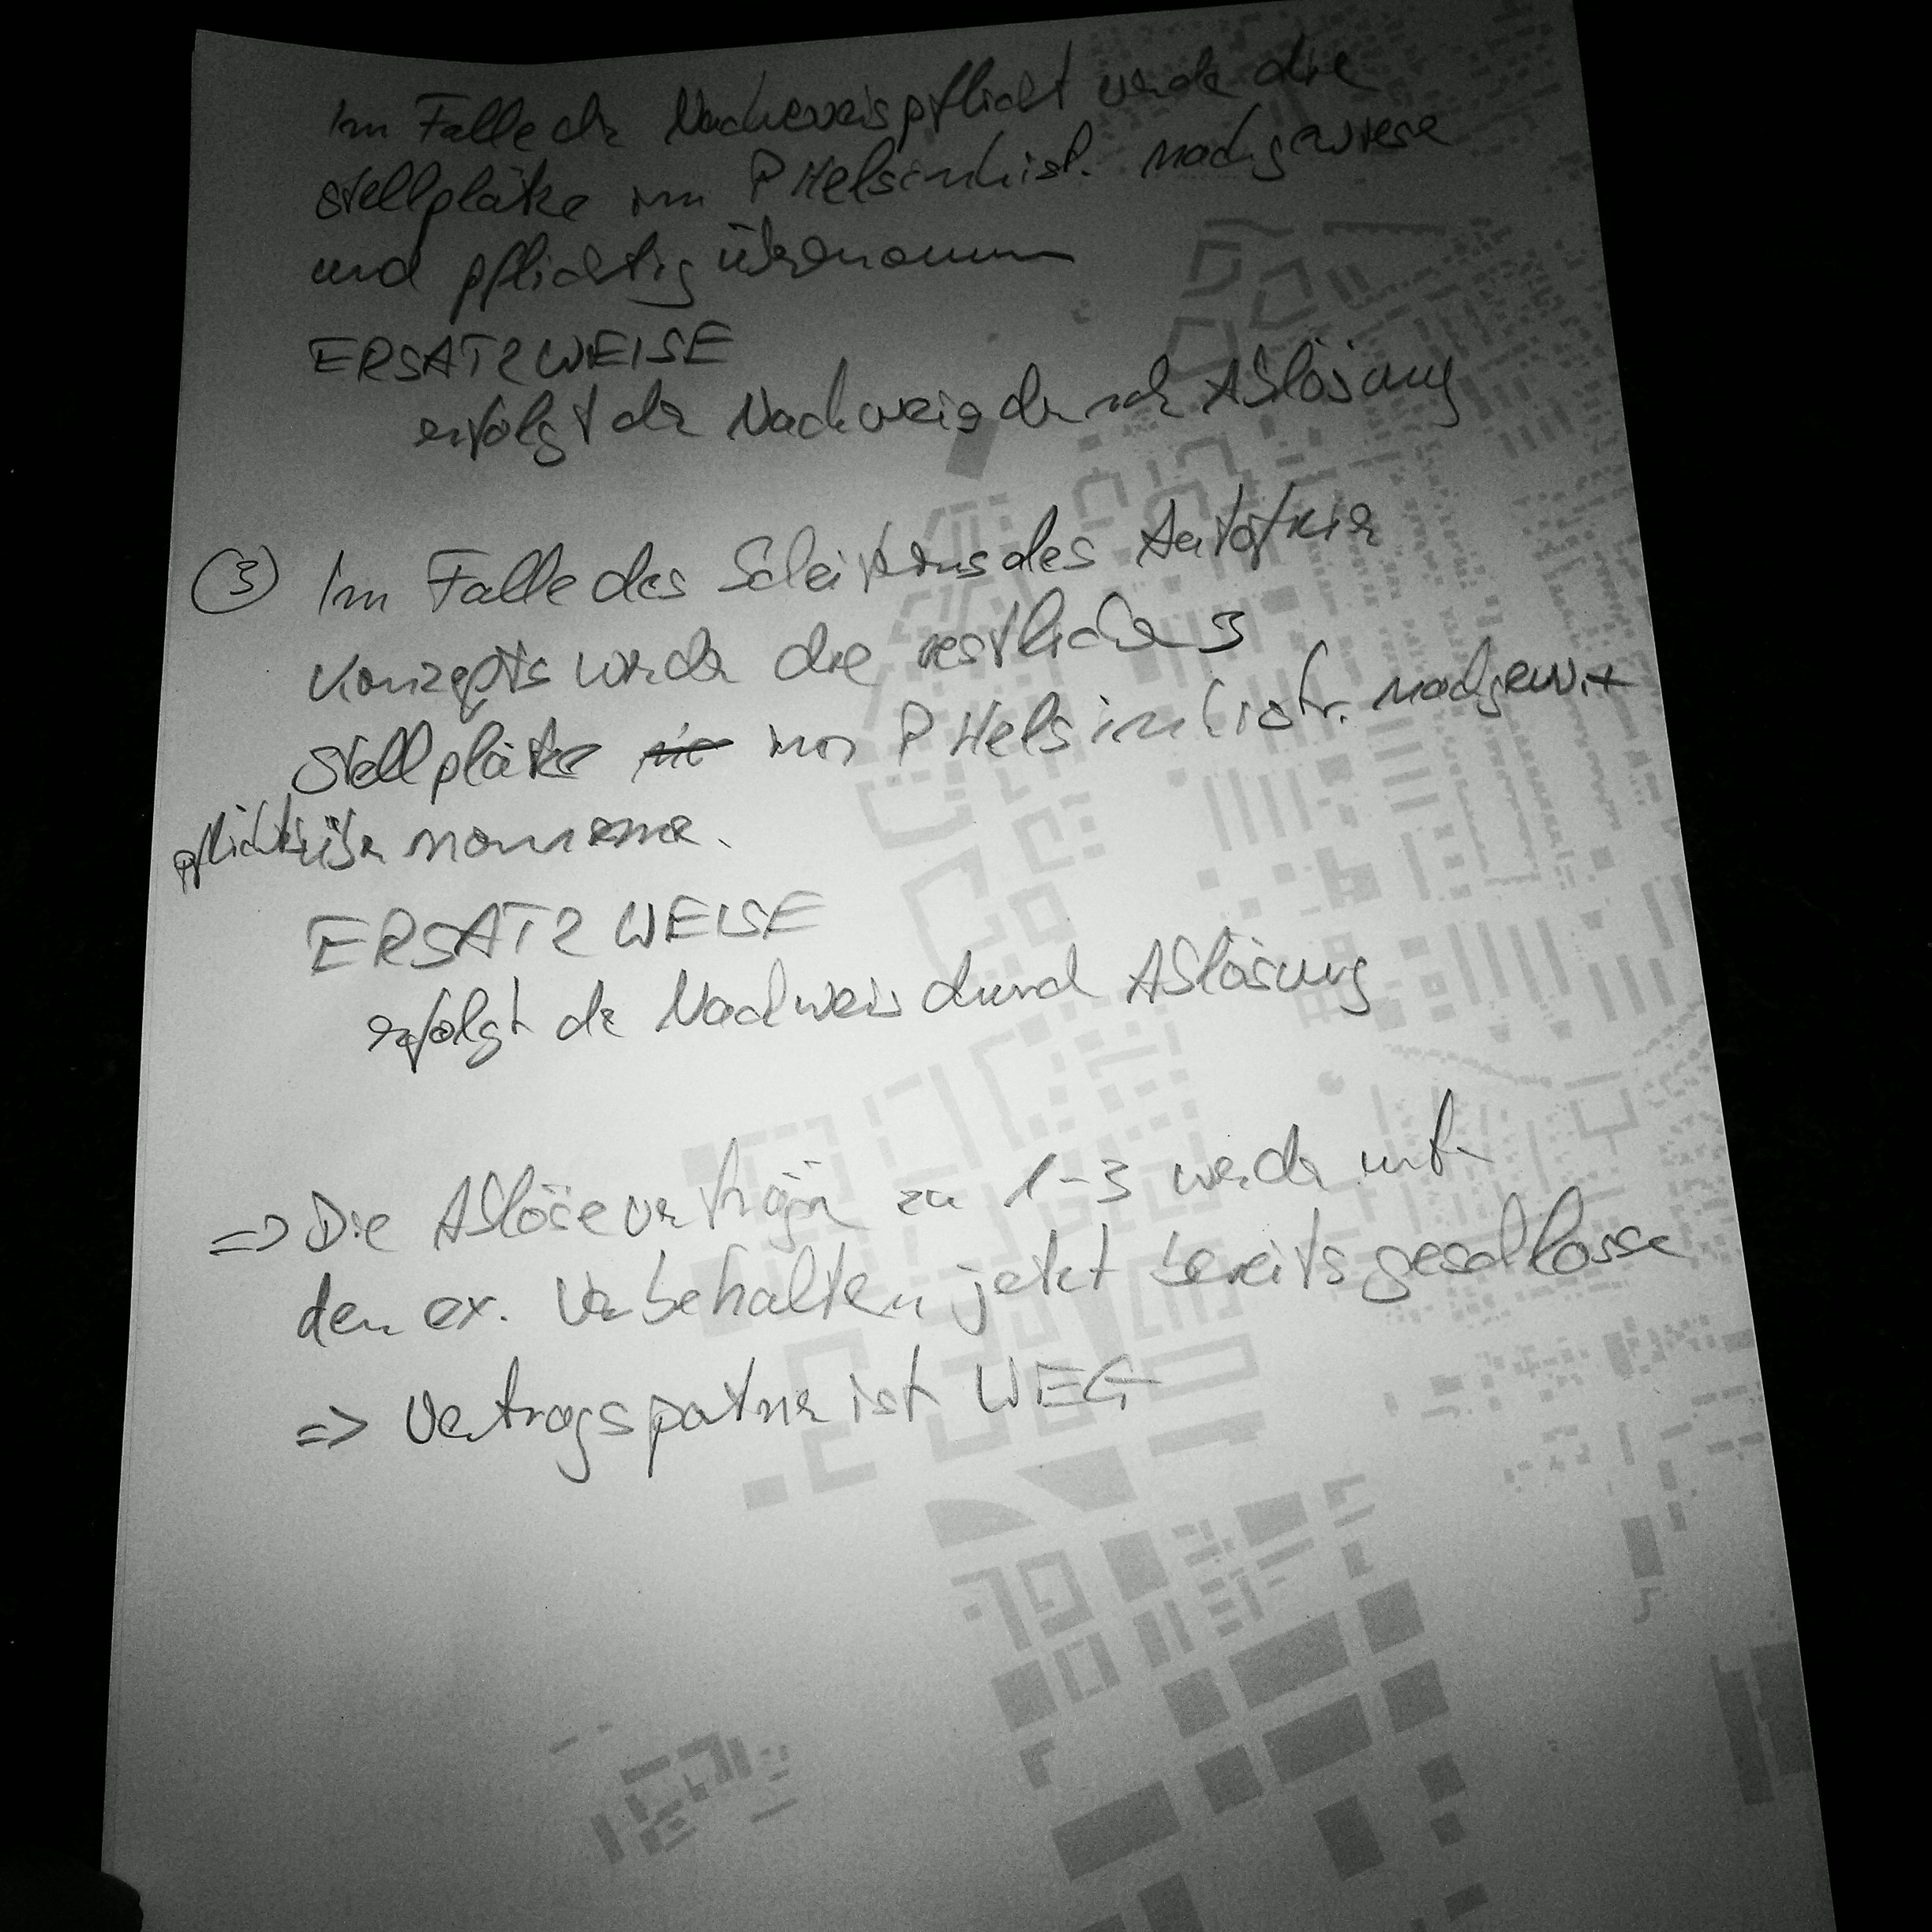 Im Falle der Nachweispflicht werden die
Stellplätze im P Helsinkist. nachgewiesen
und pflichtig übernommen
ERSATZWEISE
erfolgt der Nachweis durch Ablösung
③ Im Falle des Scheiterns des Autofreien
Konzepts werden die restlichen 3
Stellplätze im P Helsinkistr. nachgew. +
pflichtig übernommen.
ERSATZWEISE
erfolgt der Nachweis durch Ablösung
=> Die Ablöseverträge zu 1-3 werden unter
den ex. Vorbehalten jetzt bereits geschlossen
=> Vertragspartner ist WEG